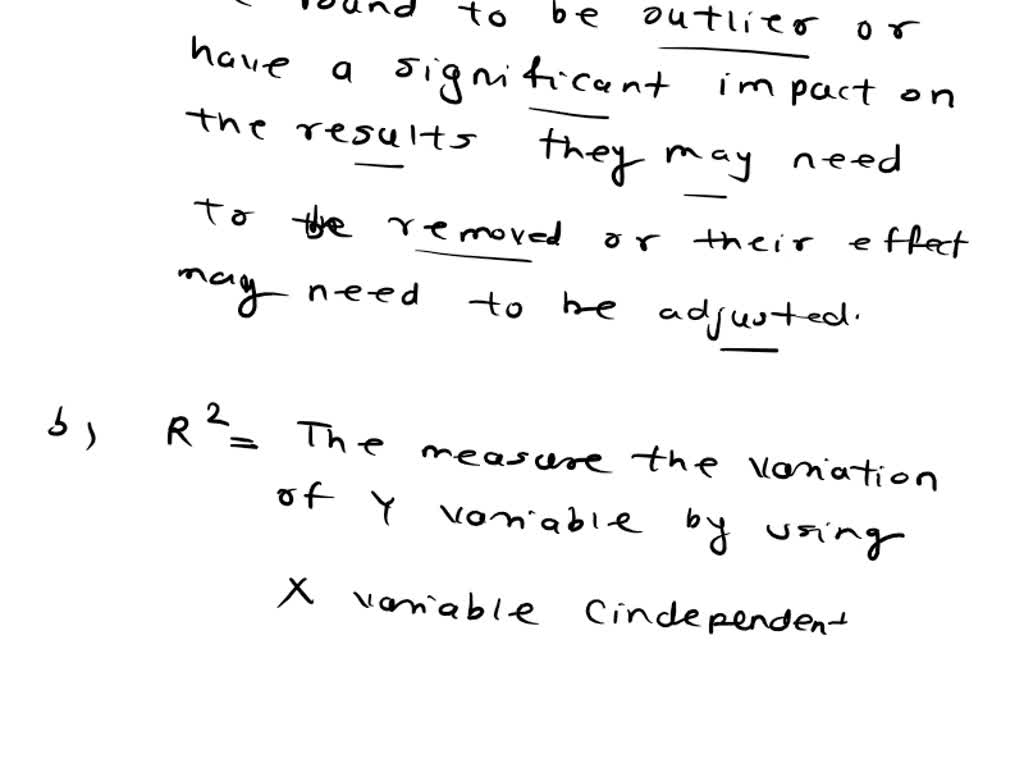 found to be outlier or
have a significant impact on
the results they may need
to be removed or their effect
may need to be adjusted.
b) R²= The measure the variation
of Y variable by using
X variable (independent